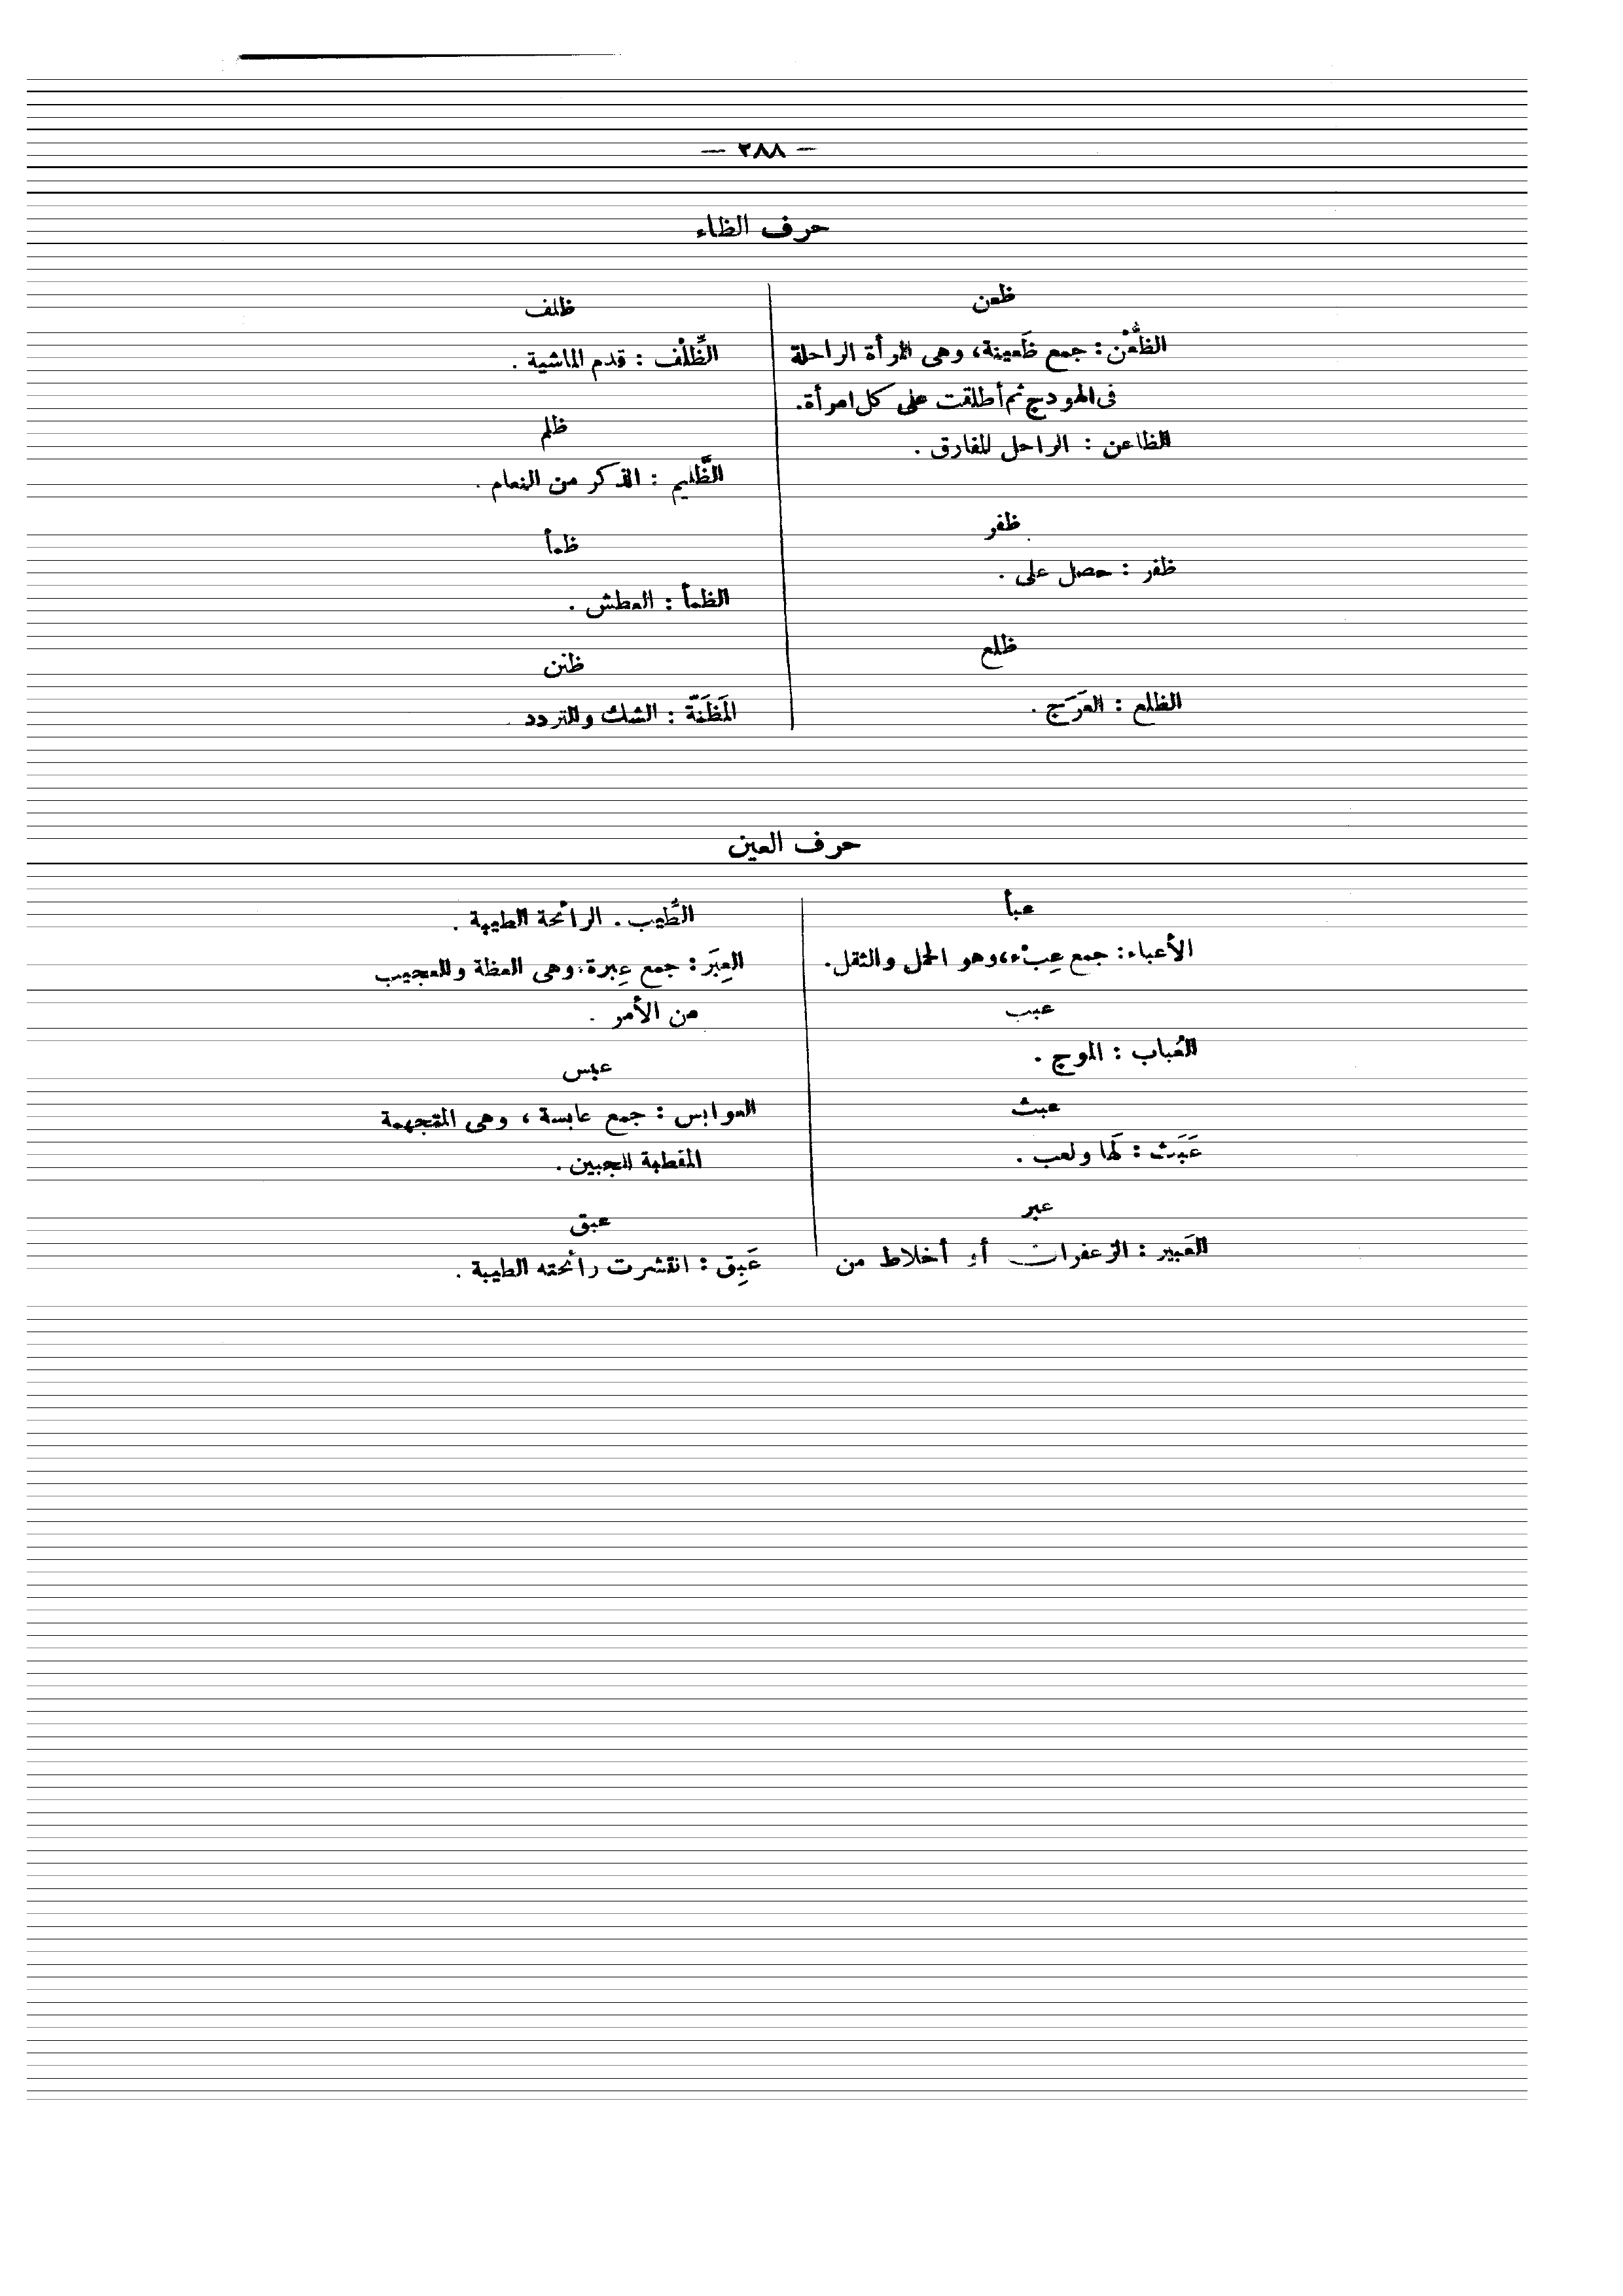 — ٢٨٨ —
حرف الظاء
ظعن
الظُّعْن : جمع ظَعينة، وهى المرأة الراحلة
فى الهودج ثم أطلقت على كل امرأة.
الظاعن : الراحل المفارق .
ظفر
ظفر : حصل على .
ظلع
الظلع : العَرَج .
ظلف
الظِّلْف : قدم الماشية .
ظلم
الظَّليم : الذكر من النعام .
ظمأ
الظمأ : العطش .
ظنن
المَظَنَّة : الشك والتردد .
حرف العين
عبأ
الأعباء : جمع عِبْء، وهو الحمل والثقل.
عبب
العُباب : الموج .
عبث
عَبَث : لَها ولعب .
عبر
العَبير : الزعفران أو أخلاط من
الطِّيب . الرائحة الطيبة .
العِبَر : جمع عِبرة، وهى العظة والعجيب
من الأمر .
عبس
العوابس : جمع عابسة ، وهى المتجهمة
المقطبة الجبين .
عبق
عَبِق : انتشرت رائحته الطيبة .